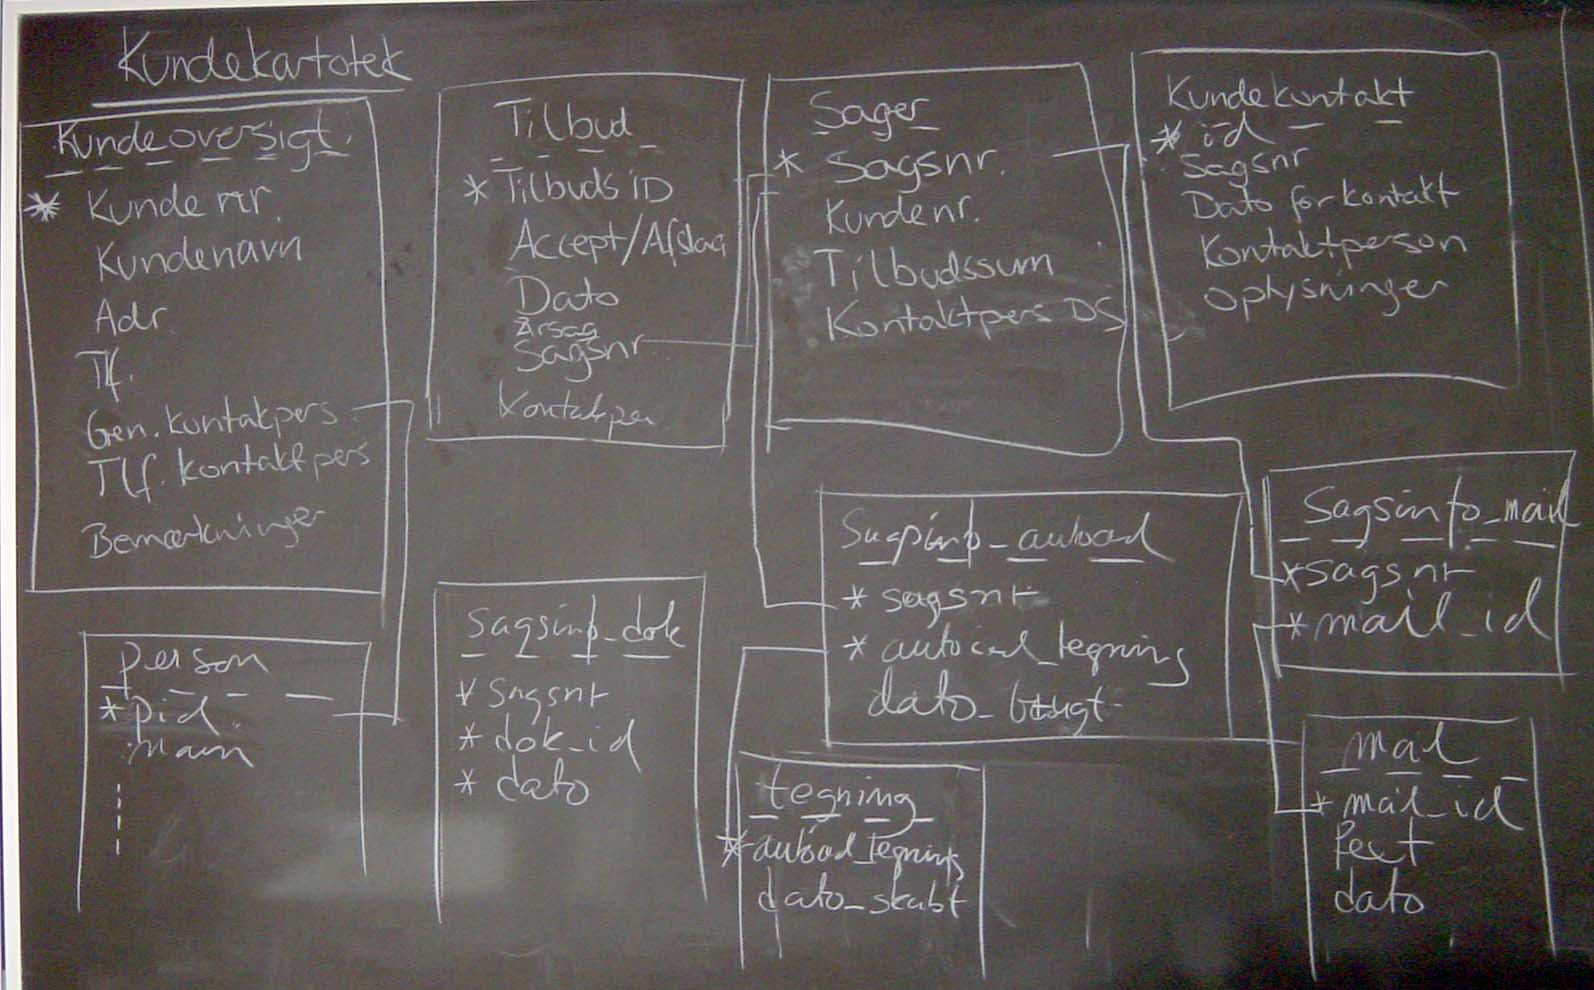 Kundekartotek
Kundeoversigt.
* Kunde nr.
Kundenavn
Adr.
Tlf.
Gen. kontakpers.
Tlf. kontaktpers
Bemærkninger
Tilbud
* Tilbuds iD
Accept/Afslag
Dato
Årsag
Sagsnr
Kontakper
Sager
* Sagsnr.
Kundenr.
Tilbudssum
Kontaktpers DS
Kundekontakt
* id
Sagsnr
Dato for kontakt
Kontaktperson
Oplysninger
person
* pid.
navn
Sagsinfo_dok
* Sagsnr
* dok_id
* dato
Sagsinfo_autocad
* sagsnr
* autocad_tegning
dato_brugt
tegning
* autocad_tegning
dato_skabt
Sagsinfo_mail
* sagsnr
* mail_id
mail
* mail_id
text
dato